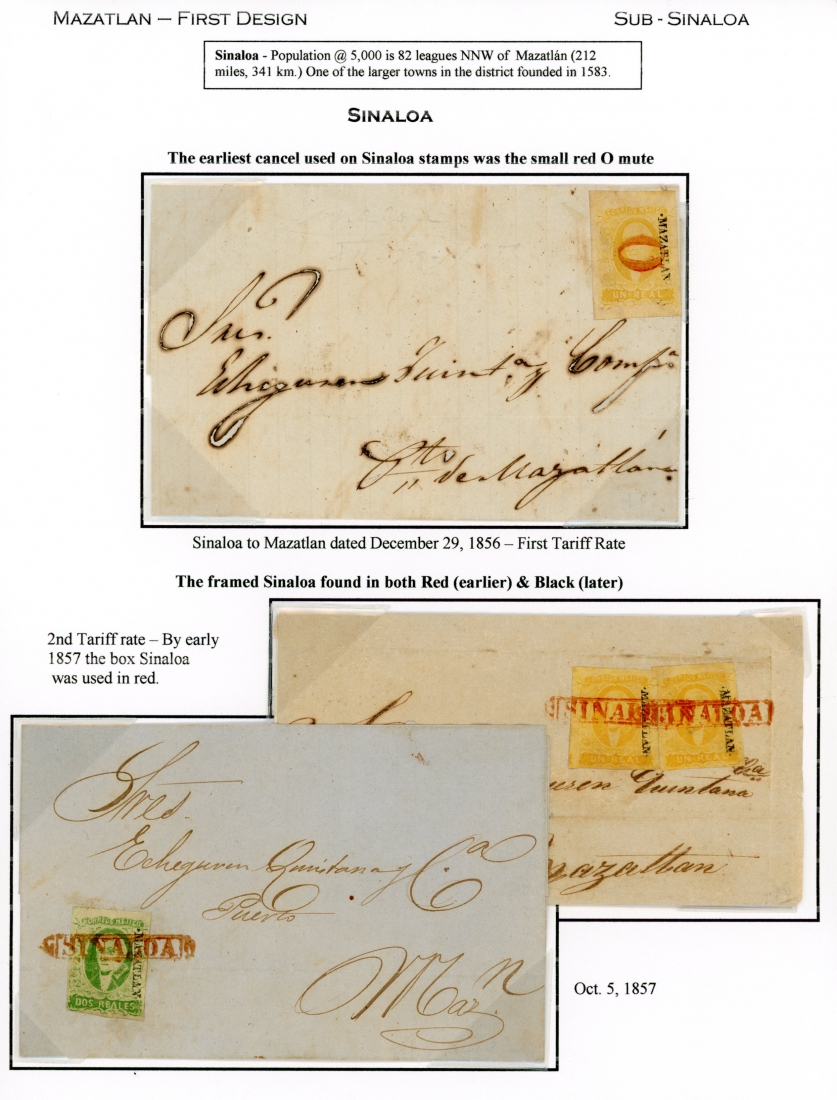 MAZATLAN – FIRST DESIGN
SUB - SINALOA
Sinaloa - Population @ 5,000 is 82 leagues NNW of Mazatlán (212
miles, 341 km.) One of the larger towns in the district founded in 1583.
SINALOA
The earliest cancel used on Sinaloa stamps was the small red O mute
CORREOS MEJICO
·MAZATLAN
O
UN REAL
Sres.
Echeguren Quinta.ª y Compª
Pto de Mazatlán
Sinaloa to Mazatlan dated December 29, 1856 – First Tariff Rate
The framed Sinaloa found in both Red (earlier) & Black (later)
2nd Tariff rate – By early
1857 the box Sinaloa
was used in red.
CORREOS MEJICO
·MAZATLAN·
UN REAL
CORREOS MEJICO
·MAZATLAN·
UN REAL
SINAL
SINALOA
uren Quintana
Cª
Mazatlan
Sres.
Echeguren Quintana y Cª
Puerto
Maz.n
CORREOS MEJICO
·MAZATLAN
SINALOA
DOS REALES
Oct. 5, 1857